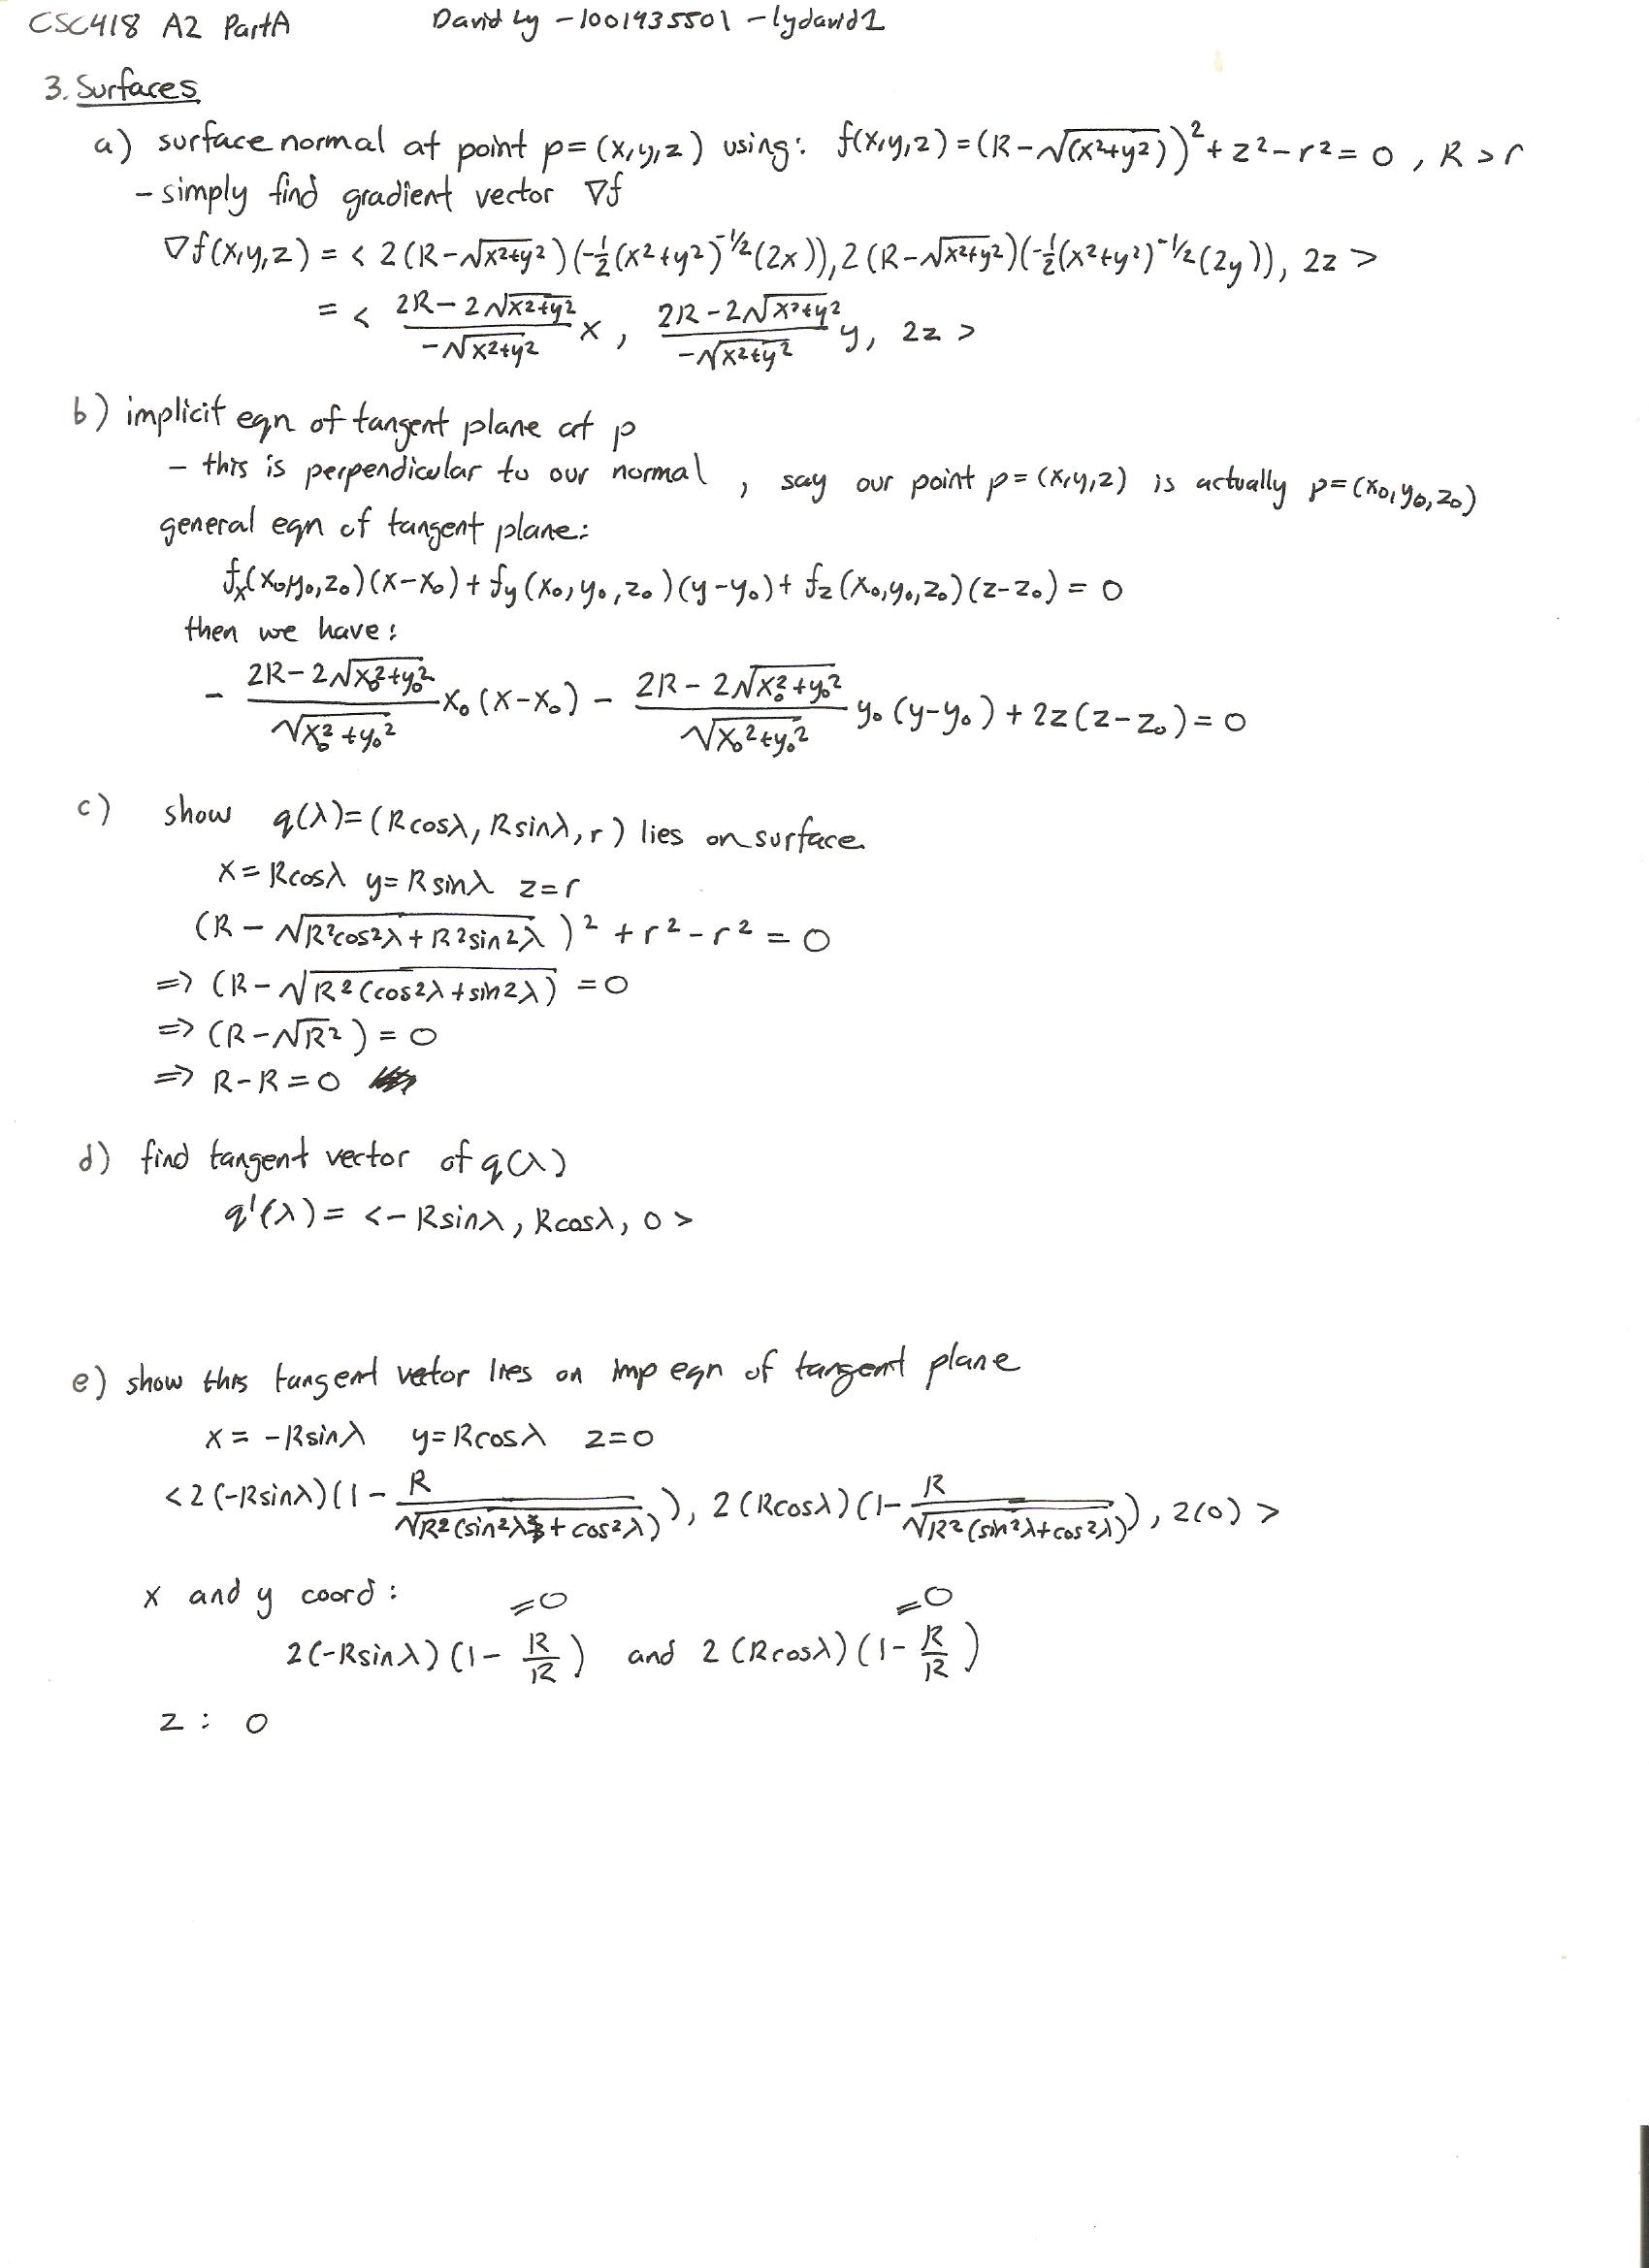 CSC418 A2 PartA David Ly - 1001435501 - lydavid1
3. Surfaces
a) surface normal at point p = (x,y,z) using: f(x,y,z) = (R-√(x²+y²))² + z² - r² = 0, R > r
- simply find gradient vector ∇f
∇f(x,y,z) = < 2(R-√x²+y²)(-½(x²+y²)^-1/2(2x)), 2(R-√x²+y²)(-½(x²+y²)^-1/2(2y)), 2z >
= < (2R - 2√x²+y²)/(-√x²+y²) x, (2R - 2√x²+y²)/(-√x²+y²) y, 2z >
b) implicit eqn of tangent plane at p
- this is perpendicular to our normal, say our point p = (x,y,z) is actually p = (x₀,y₀,z₀)
general eqn of tangent plane:
fx(x₀,y₀,z₀)(x-x₀) + fy(x₀,y₀,z₀)(y-y₀) + fz(x₀,y₀,z₀)(z-z₀) = 0
then we have:
- (2R - 2√x₀²+y₀²)/(√x₀²+y₀²) x₀(x-x₀) - (2R - 2√x₀²+y₀²)/(√x₀²+y₀²) y₀(y-y₀) + 2z(z-z₀) = 0
c) show q(λ) = (Rcosλ, Rsinλ, r) lies on surface
x = Rcosλ y = Rsinλ z = r
(R - √R²cos²λ + R²sin²λ)² + r² - r² = 0
=> (R - √R²(cos²λ + sin²λ) = 0
=> (R - √R²) = 0
=> R - R = 0
d) find tangent vector of q(λ)
q'(λ) = <-Rsinλ, Rcosλ, 0>
e) show this tangent vetor lies on imp eqn of tangent plane
x = -Rsinλ y = Rcosλ z = 0
< 2(-Rsinλ)(1 - R/√R²(sin²λ + cos²λ)), 2(Rcosλ)(1 - R/√R²(sin²λ + cos²λ)), 2(0) >
x and y coord: =0 =0
2(-Rsinλ)(1 - R/R) and 2(Rcosλ)(1 - R/R)
z : 0